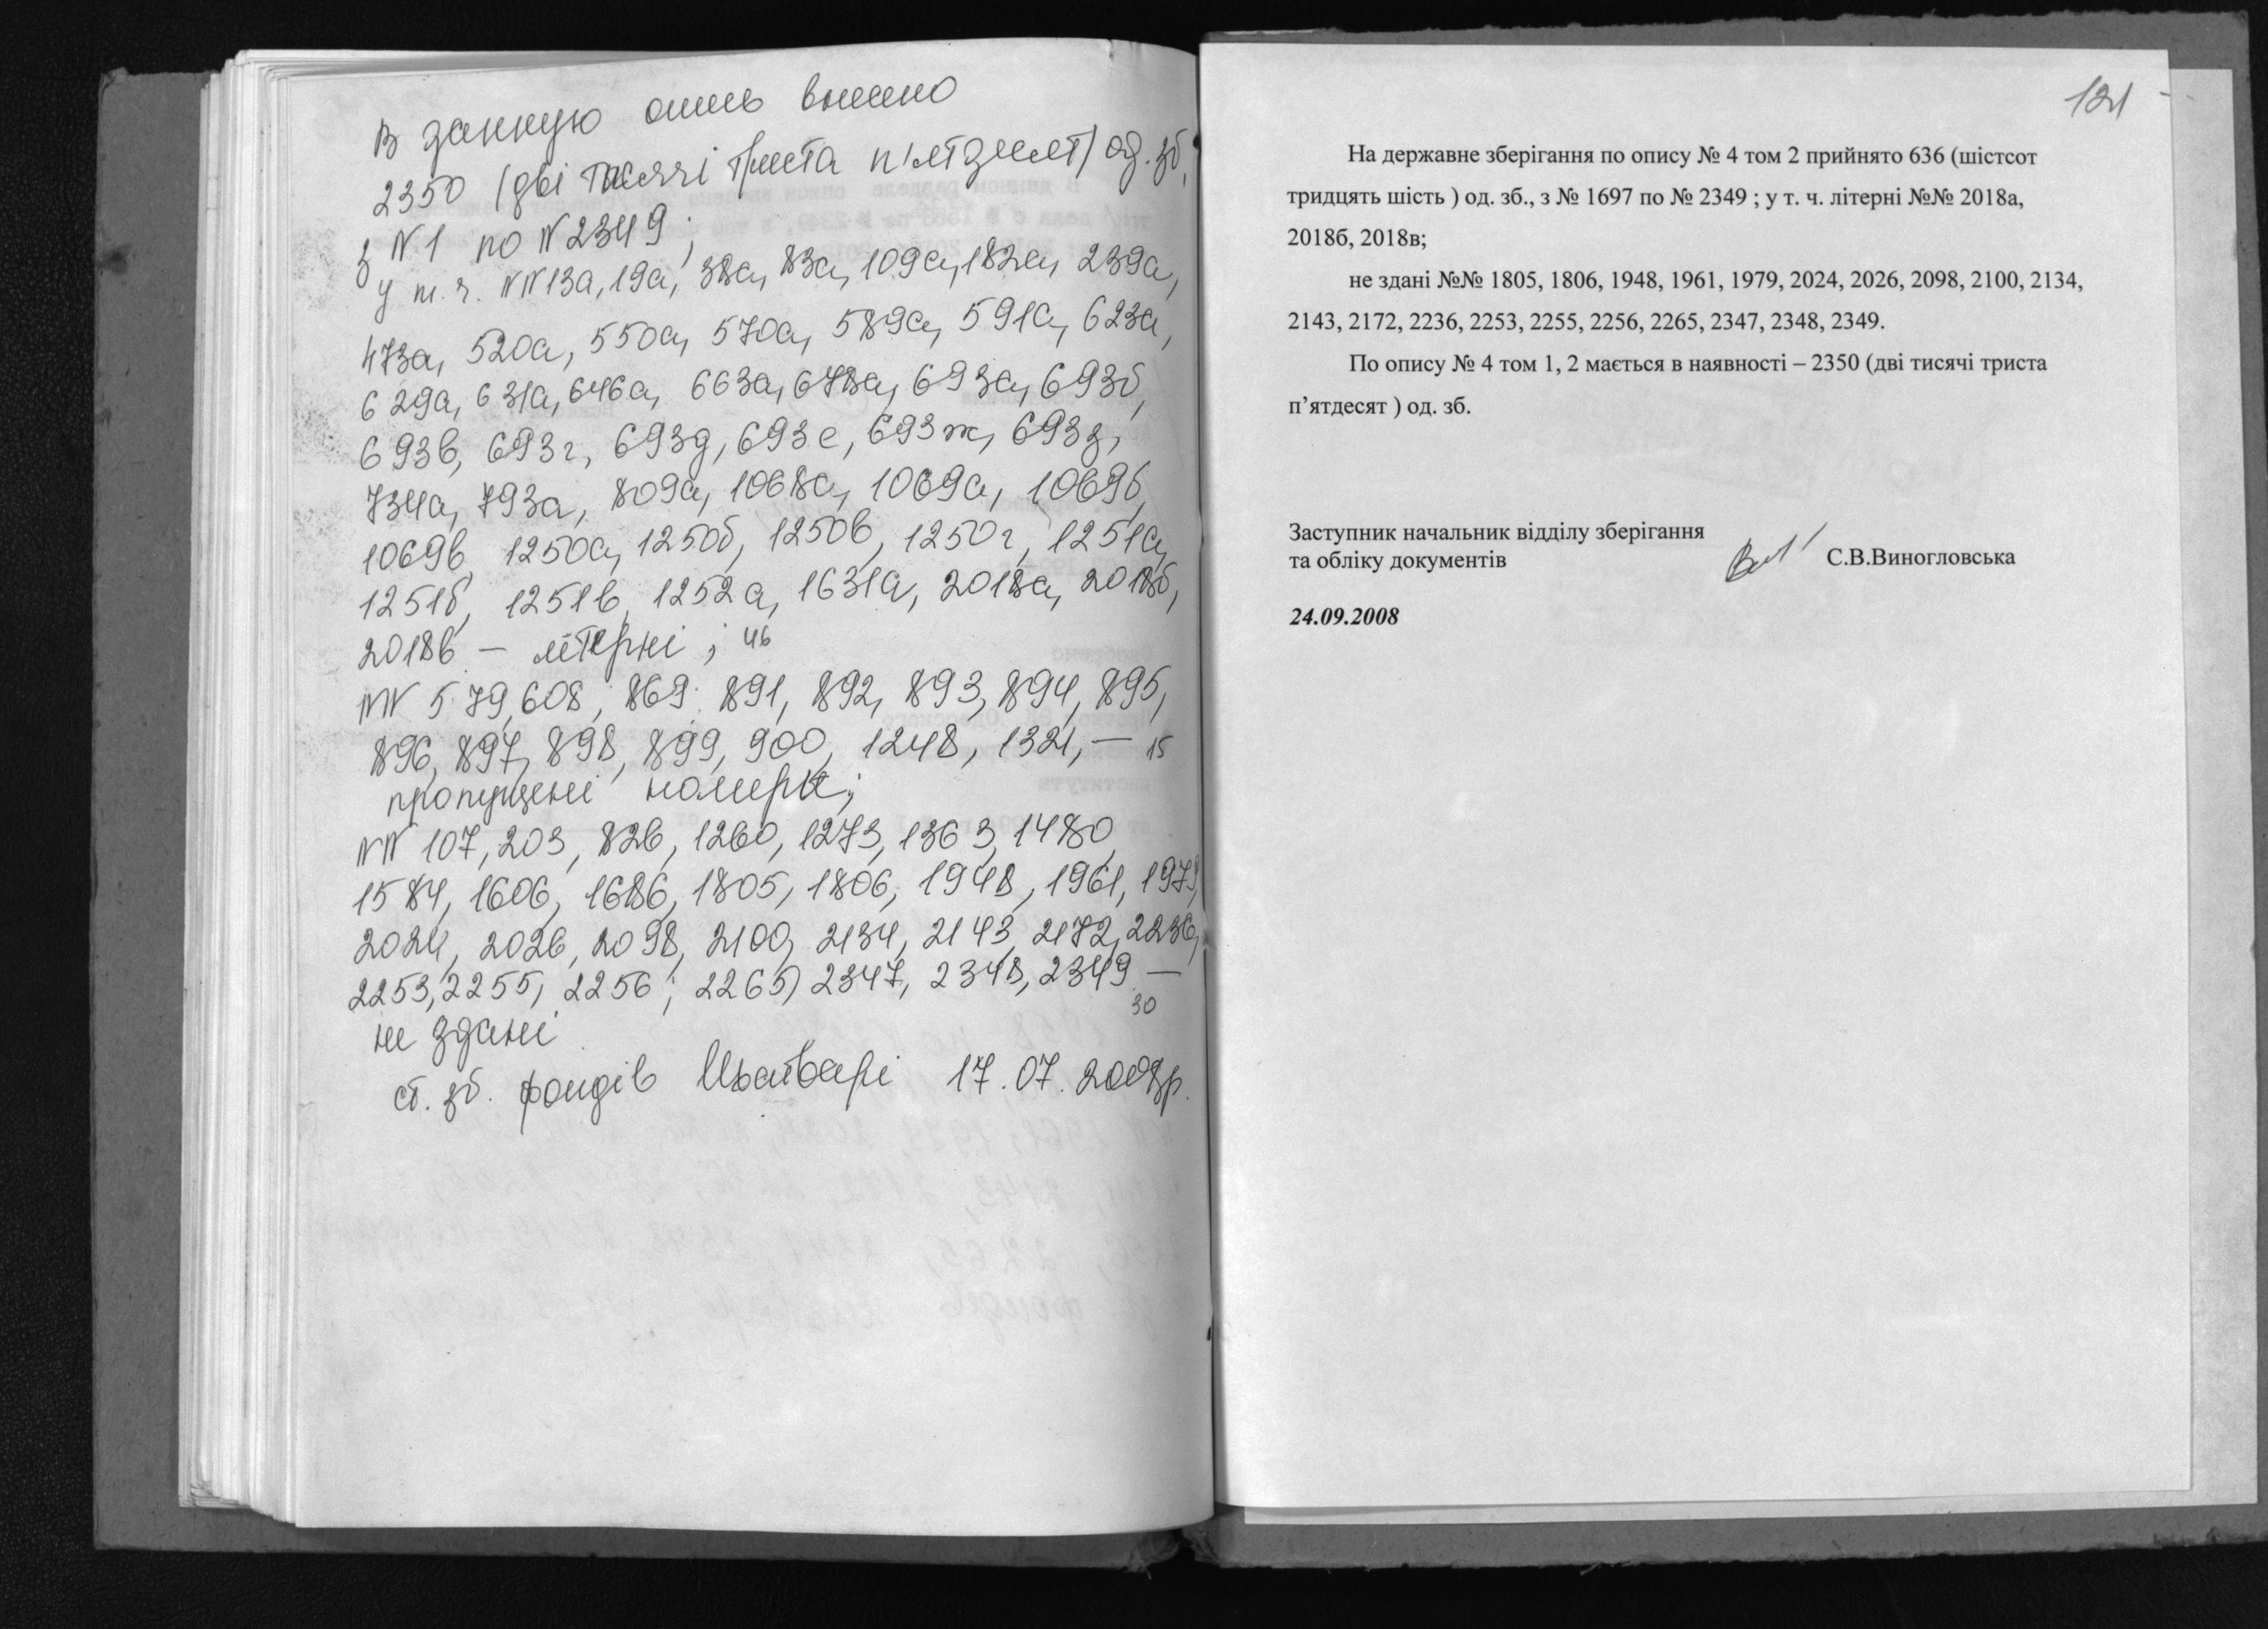 В данную опись внесено
2350 (дві тисячі триста п'ятдесят) од. зб,
з N1 по N2349;
у т. ч. NN13а, 19а, 38а, 83а, 109а, 182а, 239а,
473а, 520а, 550а, 570а, 589а, 591а, 623а,
629а, 631а, 646а, 663а, 678а, 693а, 693б,
693в, 693г, 693д, 693е, 693ж, 693з,
734а, 793а, 809а, 1068а, 1069а, 1069б,
1069в, 1250а, 1250б, 1250в, 1250г, 1251а,
1251б, 1251в, 1252а, 1631а, 2018а, 2018б,
2018в – літерні; 46
NN 579, 608, 869, 891, 892, 893, 894, 895,
896, 897, 898, 899, 900, 1248, 1321, – 15
пропущені номери;
NN 107, 203, 826, 1260, 1273, 1363, 1480,
1584, 1606, 1686, 1805, 1806, 1948, 1961, 1979,
2024, 2026, 2098, 2100, 2134, 2143, 2172, 2236,
2253, 2255, 2256, 2265, 2347, 2348, 2349 –
30
не здані
ст. зб. фондів 17.07.2008р.
121
На державне зберігання по опису № 4 том 2 прийнято 636 (шістсот
тридцять шість ) од. зб., з № 1697 по № 2349 ; у т. ч. літерні №№ 2018а,
2018б, 2018в;
не здані №№ 1805, 1806, 1948, 1961, 1979, 2024, 2026, 2098, 2100, 2134,
2143, 2172, 2236, 2253, 2255, 2256, 2265, 2347, 2348, 2349.
По опису № 4 том 1, 2 мається в наявності – 2350 (дві тисячі триста
п’ятдесят ) од. зб.
Заступник начальник відділу зберігання
та обліку документів С.В.Виногловська
24.09.2008